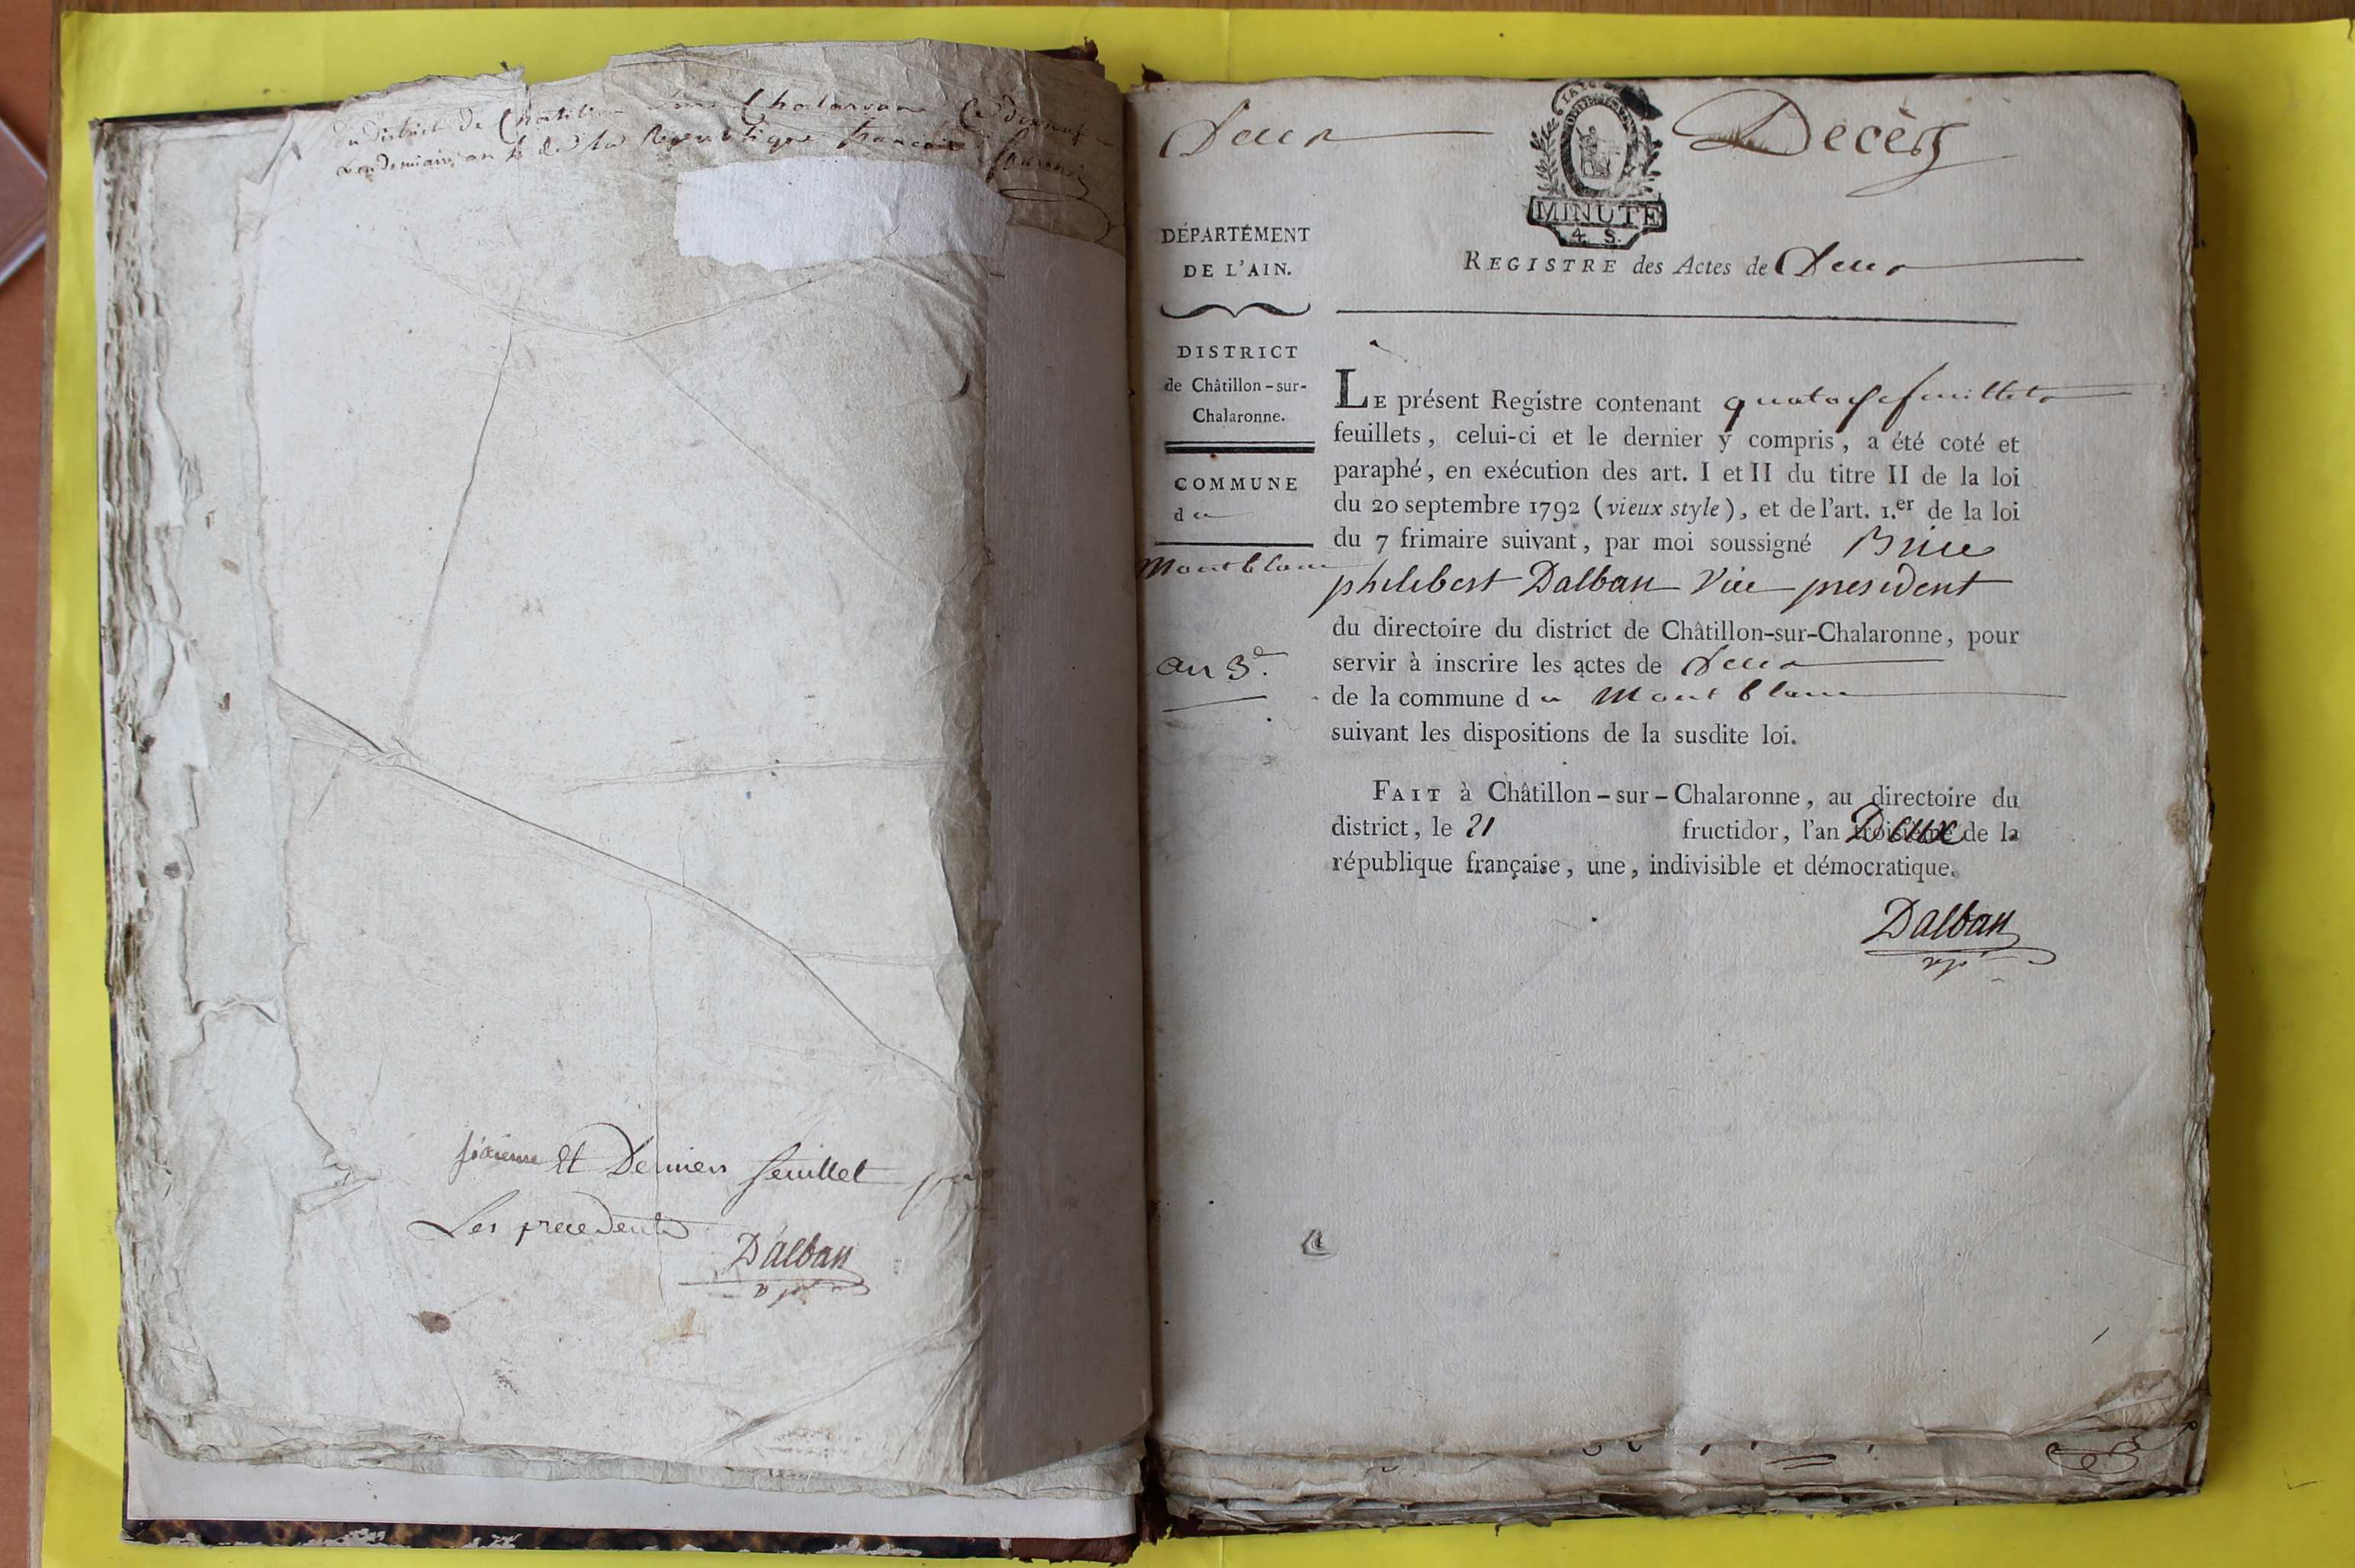 du district de Chatillon sur Chalaronne le dixneuf
vendemiaire an 4 de la Republique francaise
sixieme Et Dernier feuillet
Les precedents
Dalban
Deces
MINUTE
4 S.
DÉPARTÉMENT
DE L'AIN.
REGISTRE des Actes de Deces
DISTRICT
de Châtillon-sur-
Chalaronne.
COMMUNE
du
Montblanc
an 3e.
LE présent Registre contenant quatorze feuillets
feuillets, celui-ci et le dernier y compris, a été coté et
paraphé, en exécution des art. I et II du titre II de la loi
du 20 septembre 1792 (vieux style), et de l'art. 1.er de la loi
du 7 frimaire suivant, par moi soussigné Brice
philibert Dalban Vice president
du directoire du district de Châtillon-sur-Chalaronne, pour
servir à inscrire les actes de Deces
de la commune du Mont blanc
suivant les dispositions de la susdite loi.
FAIT à Châtillon-sur-Chalaronne, au directoire du
district, le 21 fructidor, l'an Deux de la
république française, une, indivisible et démocratique.
Dalban